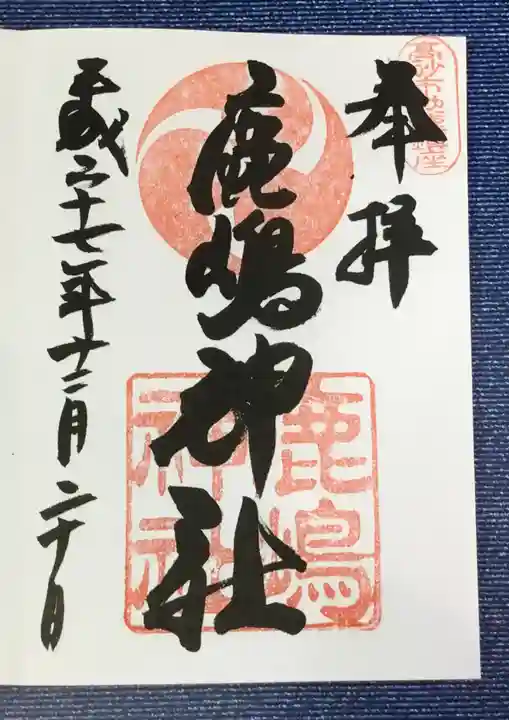 奉拝
鹿嶋神社
平成二十七年十二月二十日
鹿嶋
神社